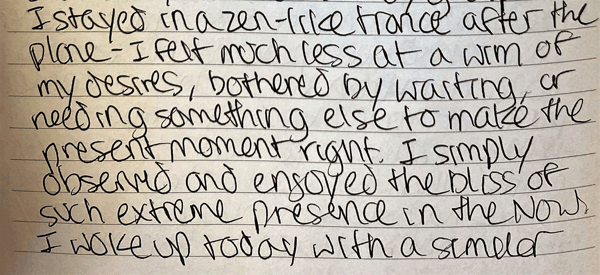 I stayed in a zen-like trance after the
plane - I felt much less at a wim of
my desires, bothered by waiting, or
needing something else to make the
present moment right. I simply
observed and enjoyed the bliss of
such extreme presence in the Now.
I woke up today with a similar